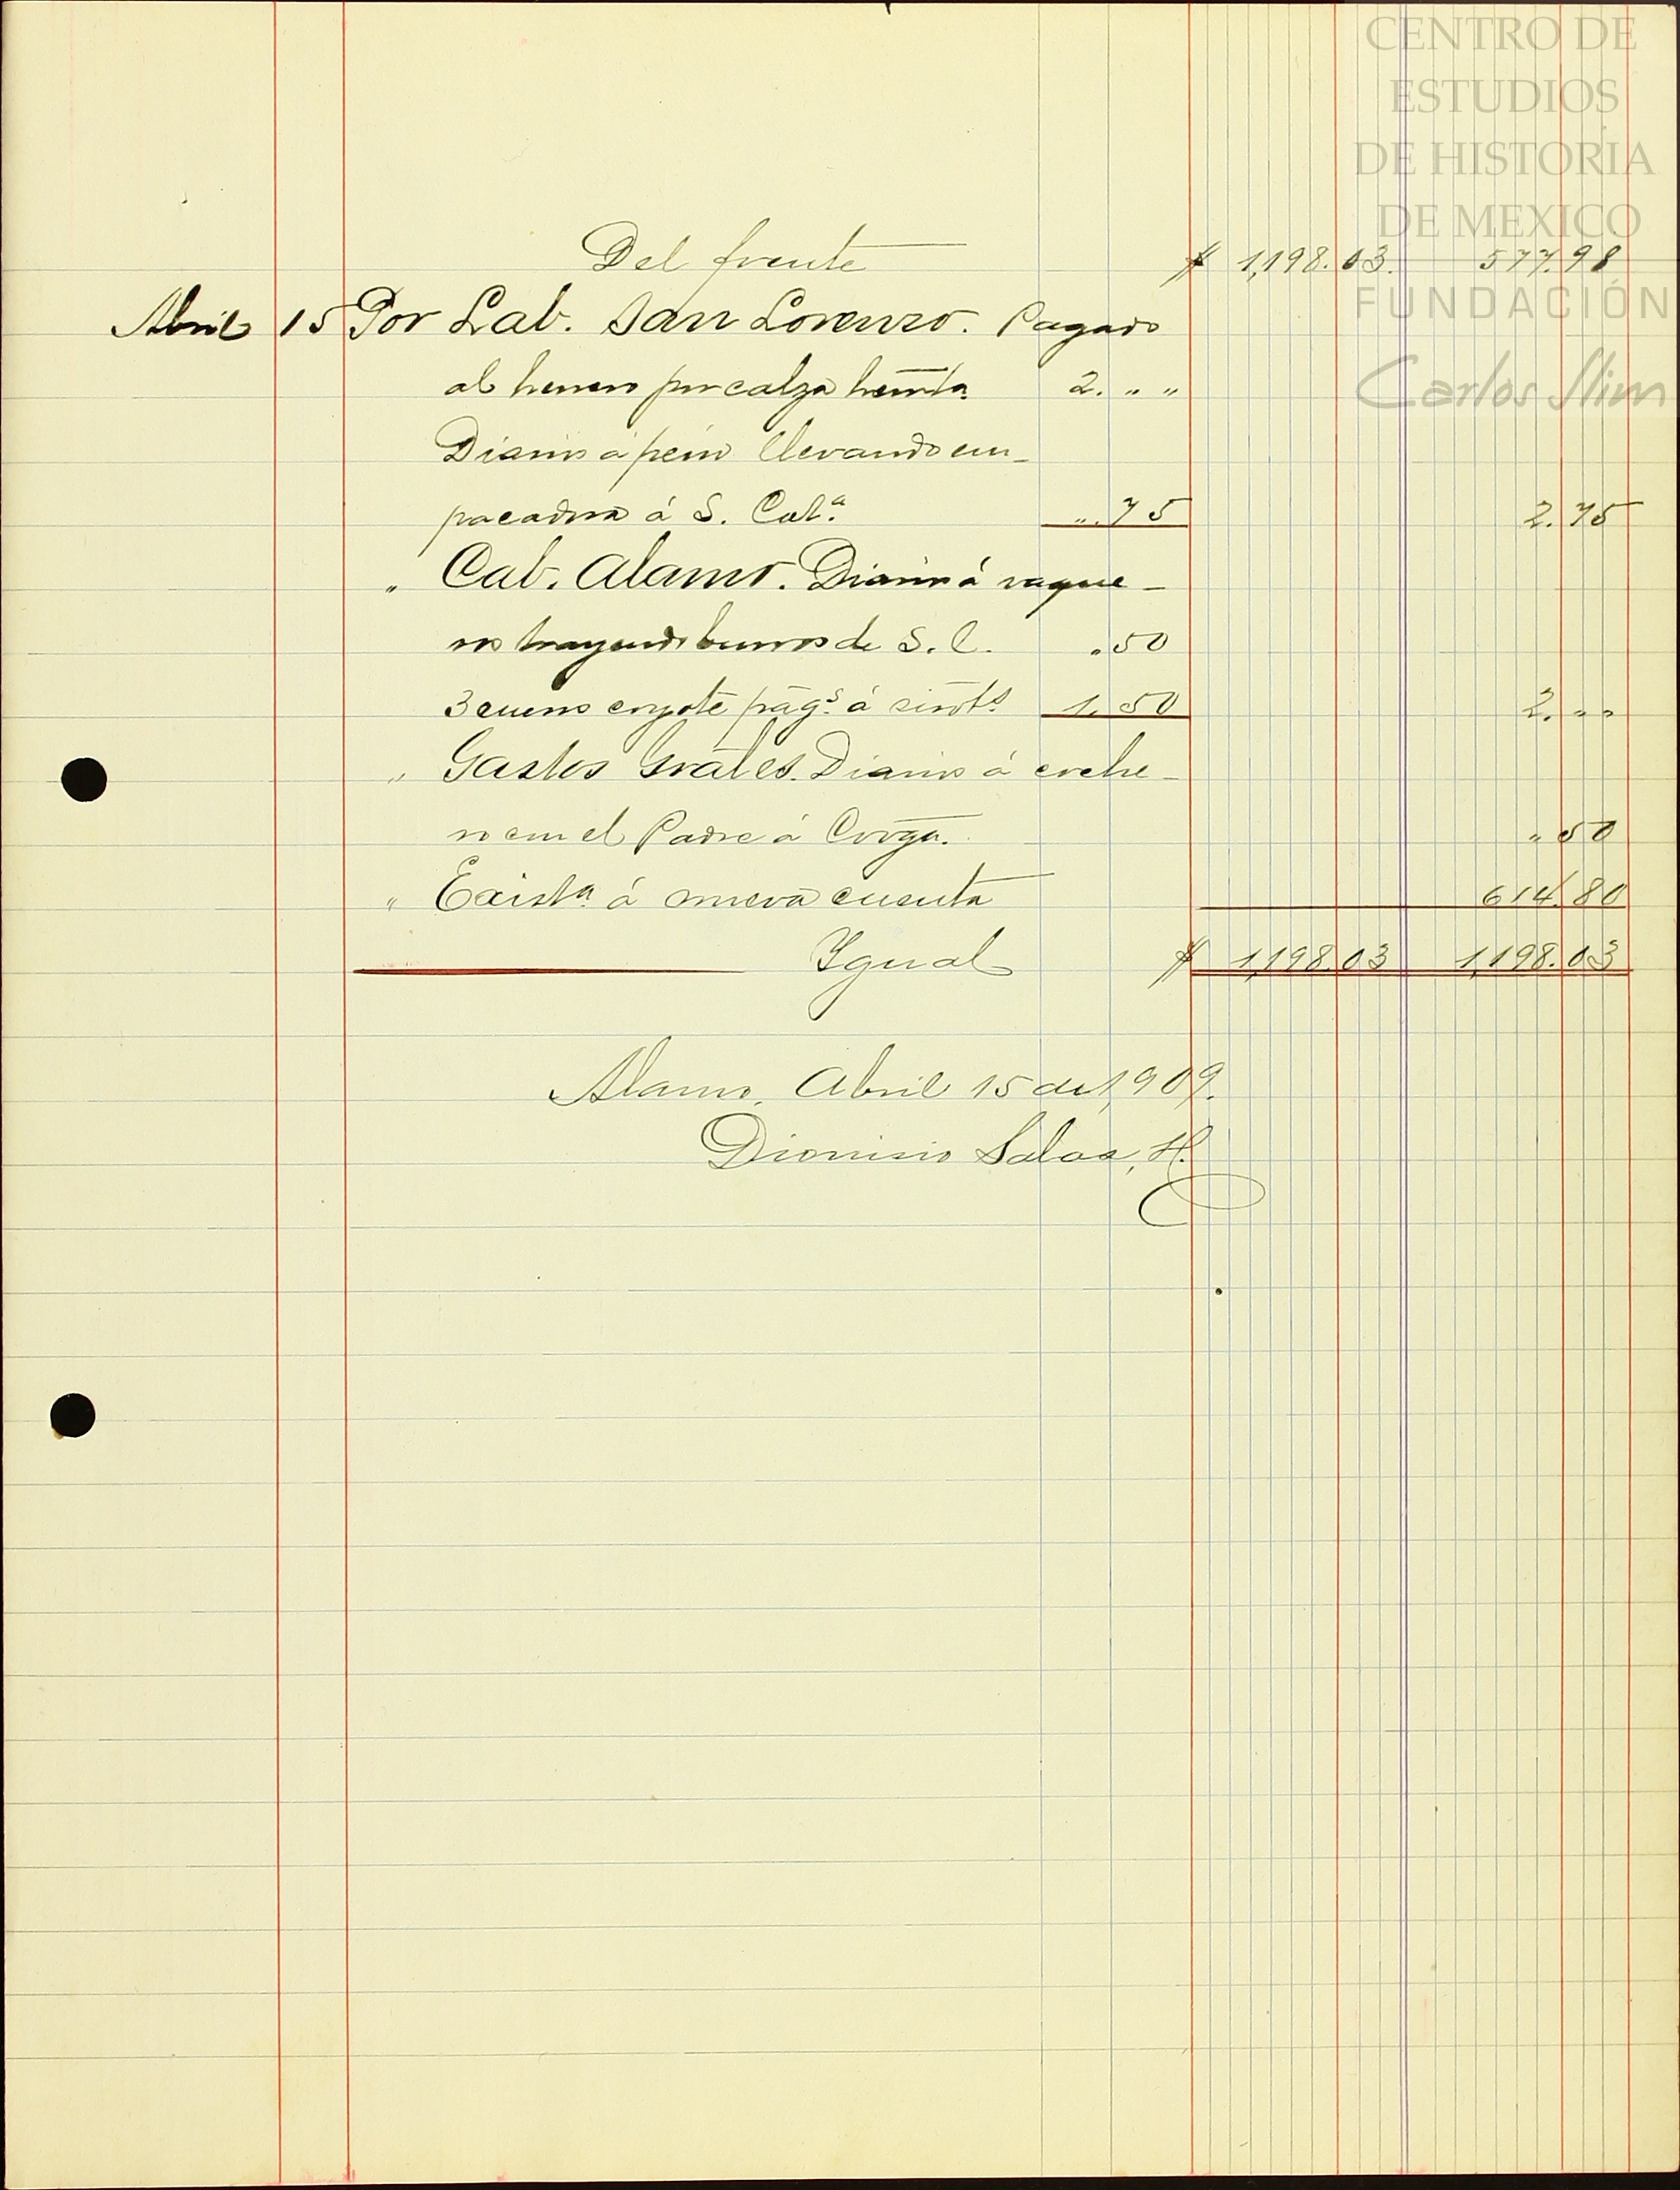 CENTRO DE
ESTUDIOS
DE HISTORIA
DE MEXICO
FUNDACIÓN
Carlos Slim
Del frente $ 1,198.03. 577.98
Abril 15 Por Lab. San Lorenzo. Pagado
al herrero por calza herrta. 2. " "
Diario á peón llevando em-
pacadora á S. Cata. ". 75 2. 75
" Cab. Alamo. Diario á vaque-
ros trayendo burros de S. C. . 50
3 cueros coyote págs. á 1. 50 2. " "
" Gastos Grales. Diario á coche-
ro con el Padre á " 50
" Exista. á nueva cuenta 614. 80
Ygual $ 1,198.03 1,198.03
Alamo, Abril 15 de 1,909.
Dionisio Salas, H.